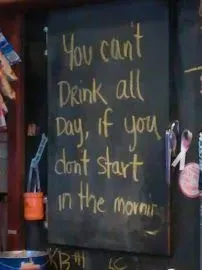 You can't
Drink all
Day, if you
don't start
in the morning
KB#1